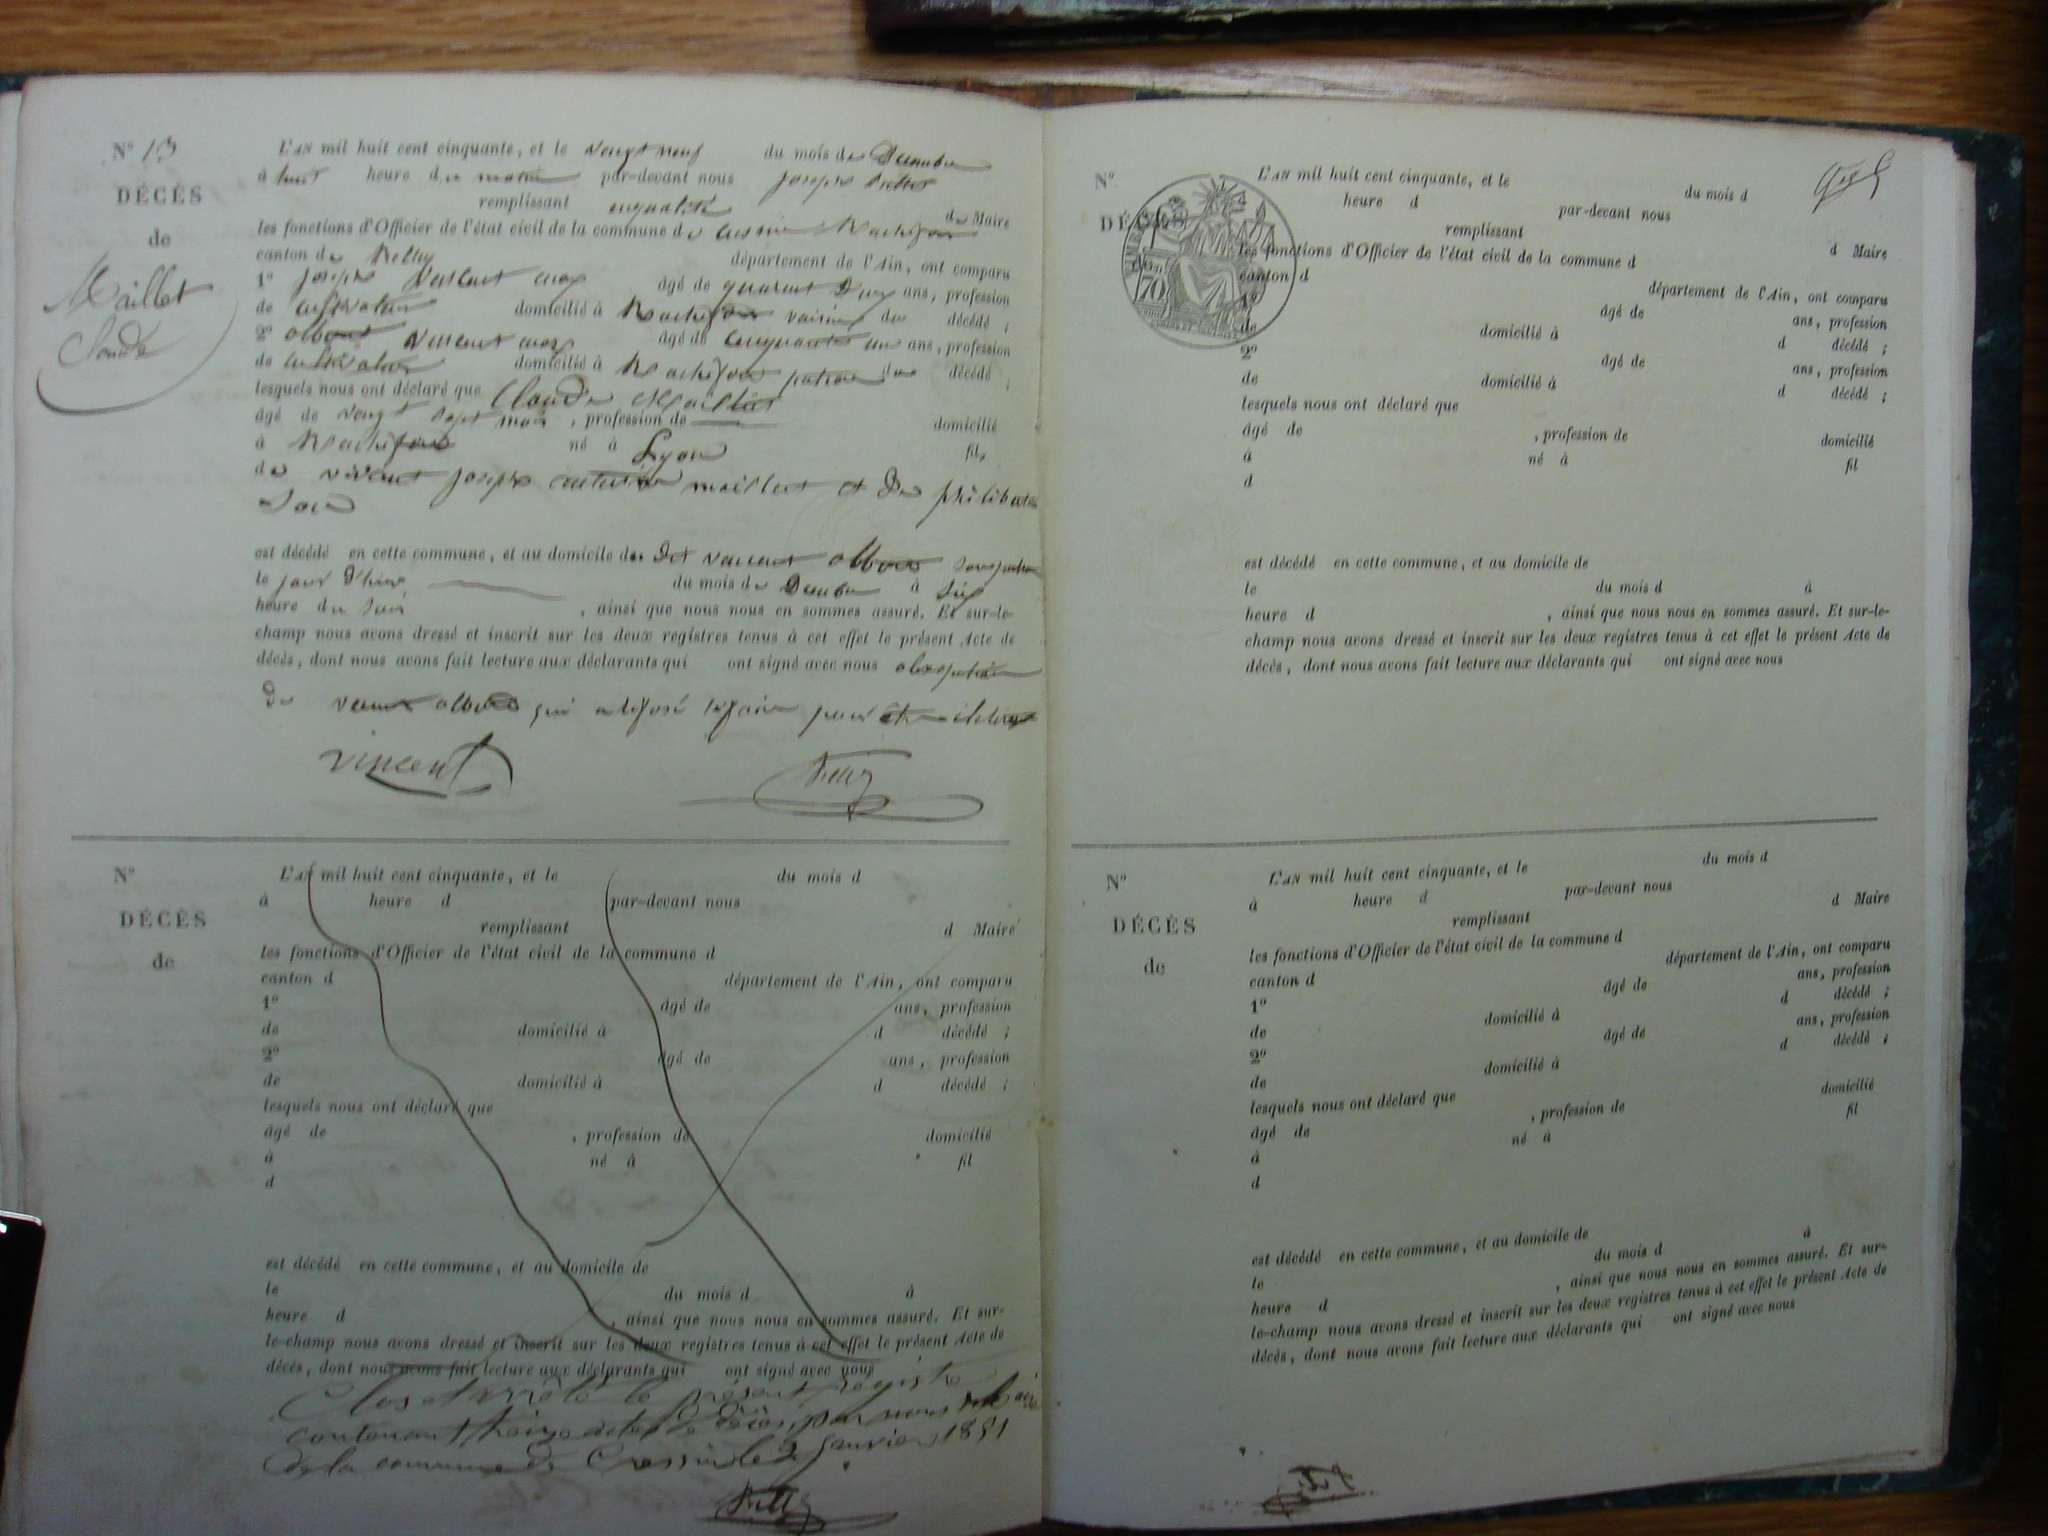 N° 13
DÉCÈS
de
Maillet
Claude
L'AN mil huit cent cinquante, et le vengt neuf du mois de Decembre
à huit heure du matin par-devant nous Joseph
remplissant en qualité de Maire
les fonctions d'Officier de l'état civil de la commune de Rochefort
canton de Belley département de l'Ain, ont comparu
1° Joseph Vincent âgé de quarent ans, profession
de cultivateur domicilié à Rochefort voisin du décédé ;
2° Vincent âgé de cinquante un ans, profession
de cultivateur domicilié à Rochefort du décédé ;
lesquels nous ont déclaré que Claude Maillet
âgé de vengt sept mois , profession de domicilié
à Rochefort né à Lyon fils
de vivent Joseph maillet et de philiberte
est décédé en cette commune, et au domicile de dit vencent
le jour d'hier du mois de Decembre à Six
heure du Soir , ainsi que nous nous en sommes assuré. Et sur-le-
champ nous avons dressé et inscrit sur les deux registres tenus à cet effet le présent Acte de
décès, dont nous avons fait lecture aux déclarants qui ont signé avec nous
de qui pour
vincent
N°
DÉCÈS
de
L'AN mil huit cent cinquante, et le du mois d
à heure d par-devant nous
remplissant d Maire
les fonctions d'Officier de l'état civil de la commune d
canton d département de l'Ain, ont comparu
1° âgé de ans, profession
de domicilié à d décédé ;
2° âgé de ans, profession
de domicilié à d décédé ;
lesquels nous ont déclaré que
âgé de , profession de domicilié
à né à fil
d
est décédé en cette commune, et au domicile de
le du mois d à
heure d , ainsi que nous nous en sommes assuré. Et sur-
le-champ nous avons dressé et inscrit sur les deux registres tenus à cet effet le présent Acte de
décès, dont nous avons fait lecture aux déclarants qui ont signé avec nous
Clos et arrêté le présent registre
contenant treize actes de décès, par nous Maire
de la commune de Cressin le 2 Janvier 1851
N°
DÉCÈS
L'AN mil huit cent cinquante, et le du mois d
heure d par-devant nous
remplissant d Maire
les fonctions d'Officier de l'état civil de la commune d
canton d département de l'Ain, ont comparu
1° âgé de ans, profession
de domicilié à d décédé ;
2° âgé de ans, profession
de domicilié à d décédé ;
lesquels nous ont déclaré que
âgé de , profession de domicilié
à né à fil
d
est décédé en cette commune, et au domicile de
le du mois d à
heure d , ainsi que nous nous en sommes assuré. Et sur-le-
champ nous avons dressé et inscrit sur les deux registres tenus à cet effet le présent Acte de
décès, dont nous avons fait lecture aux déclarants qui ont signé avec nous
N°
DÉCÈS
de
L'AN mil huit cent cinquante, et le du mois d
à heure d par-devant nous
remplissant d Maire
les fonctions d'Officier de l'état civil de la commune d
canton d département de l'Ain, ont comparu
1° âgé de ans, profession
de domicilié à d décédé ;
2° âgé de ans, profession
de domicilié à d décédé ;
lesquels nous ont déclaré que
âgé de , profession de domicilié
à né à fil
d
est décédé en cette commune, et au domicile de
le du mois d à
heure d , ainsi que nous nous en sommes assuré. Et sur-
le-champ nous avons dressé et inscrit sur les deux registres tenus à cet effet le présent Acte de
décès, dont nous avons fait lecture aux déclarants qui ont signé avec nous